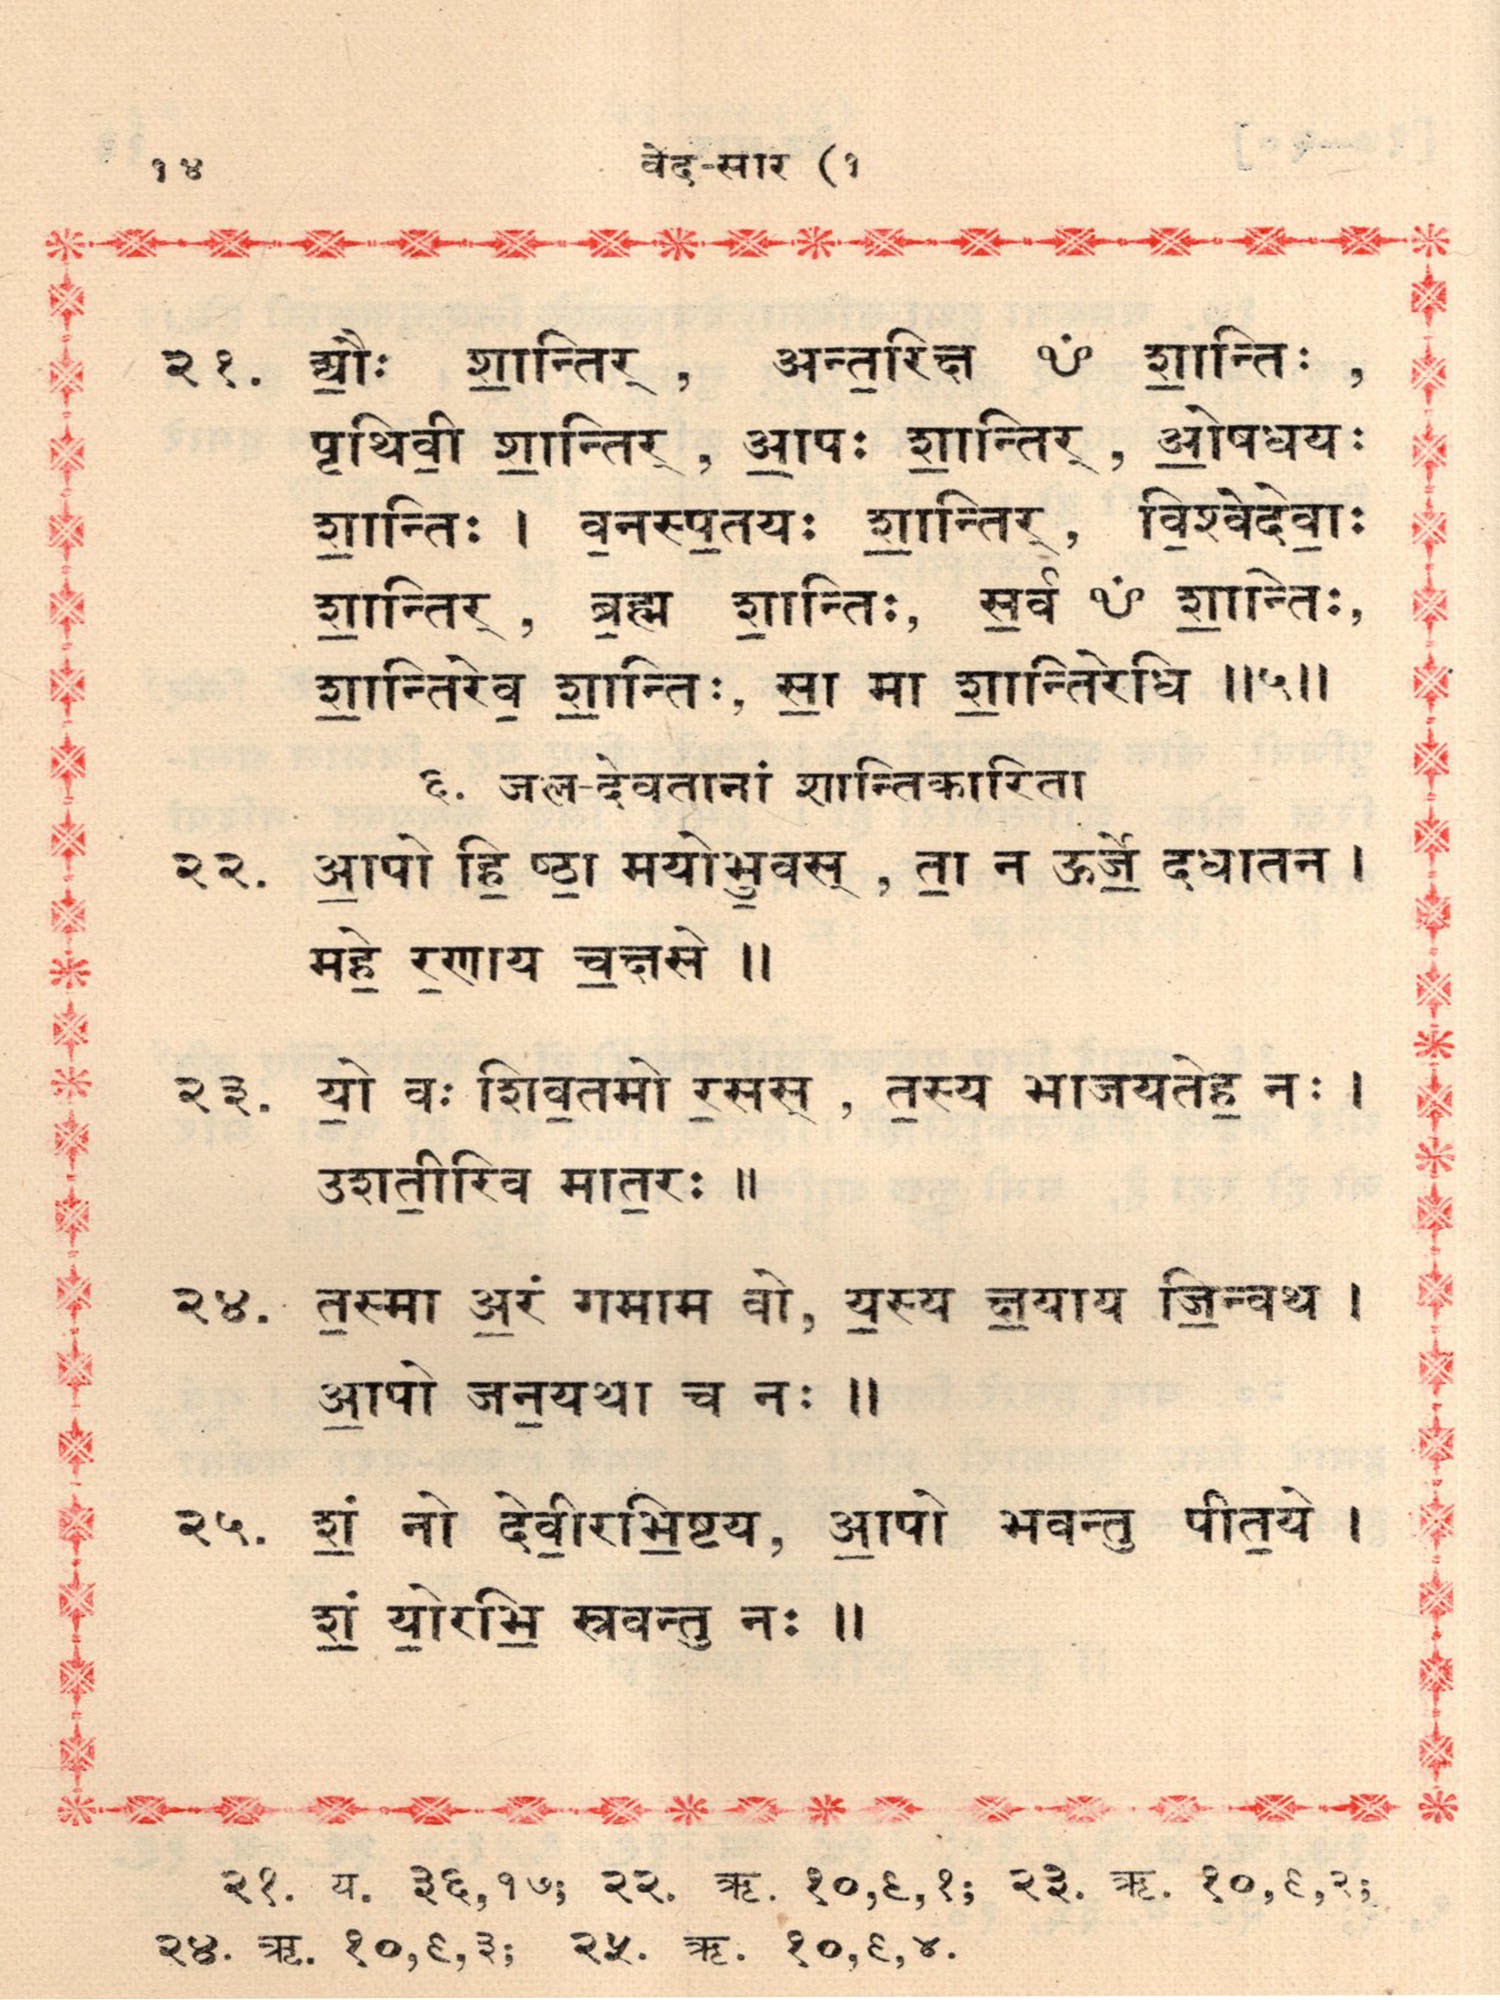 १४ वेद-सार (१
२१. द्यौः॒ शा॒न्तिर् , अन्त॒रिक्ष ꣳ शा॒न्तिः ,
पृ॒थिवी॒ शा॒न्तिर् , आ॒पः शा॒न्तिर् , ओ॒षधयः
शा॒न्तिः । व॒नस्प॒तयः शा॒न्तिर् , वि॒श्वेदेवा॒ः
शा॒न्तिर् , ब्र॒ह्म शा॒न्तिः, स॒र्व ꣳ शा॒न्तिः,
शा॒न्तिरेव॒ शा॒न्तिः, सा॒ मा शा॒न्तिरेधि ॥५॥
६. जल-देवतानां शान्तिकारिता
२२. आ॒पो हि॒ ष्ठा॒ मयोभु॒वस् , ता॒ न ऊर्जे॒ दधातन ।
महे॒ र॒णाय च॒क्षसे ॥
२३. यो॒ वः शिव॒तमो र॒सस् , त॒स्य भाजयतेह॒ नः ।
उशती॒रिव मात॒रः ॥
२४. त॒स्मा अ॒रं गमाम वो, य॒स्य क्ष॒याय जि॒न्वथ ।
आ॒पो जन॒यथा च नः ॥
२५. शं॒ नो देवी॒रभि॒ष्टय, आ॒पो भवन्तु पीत॒ये ।
शं॒ यो॒रभि॒ स्रवन्तु नः ॥
२१. य. ३६,१७; २२. ऋ. १०,९,१; २३. ऋ. १०,९,२;
२४. ऋ. १०,९,३; २५. ऋ. १०,९,४.